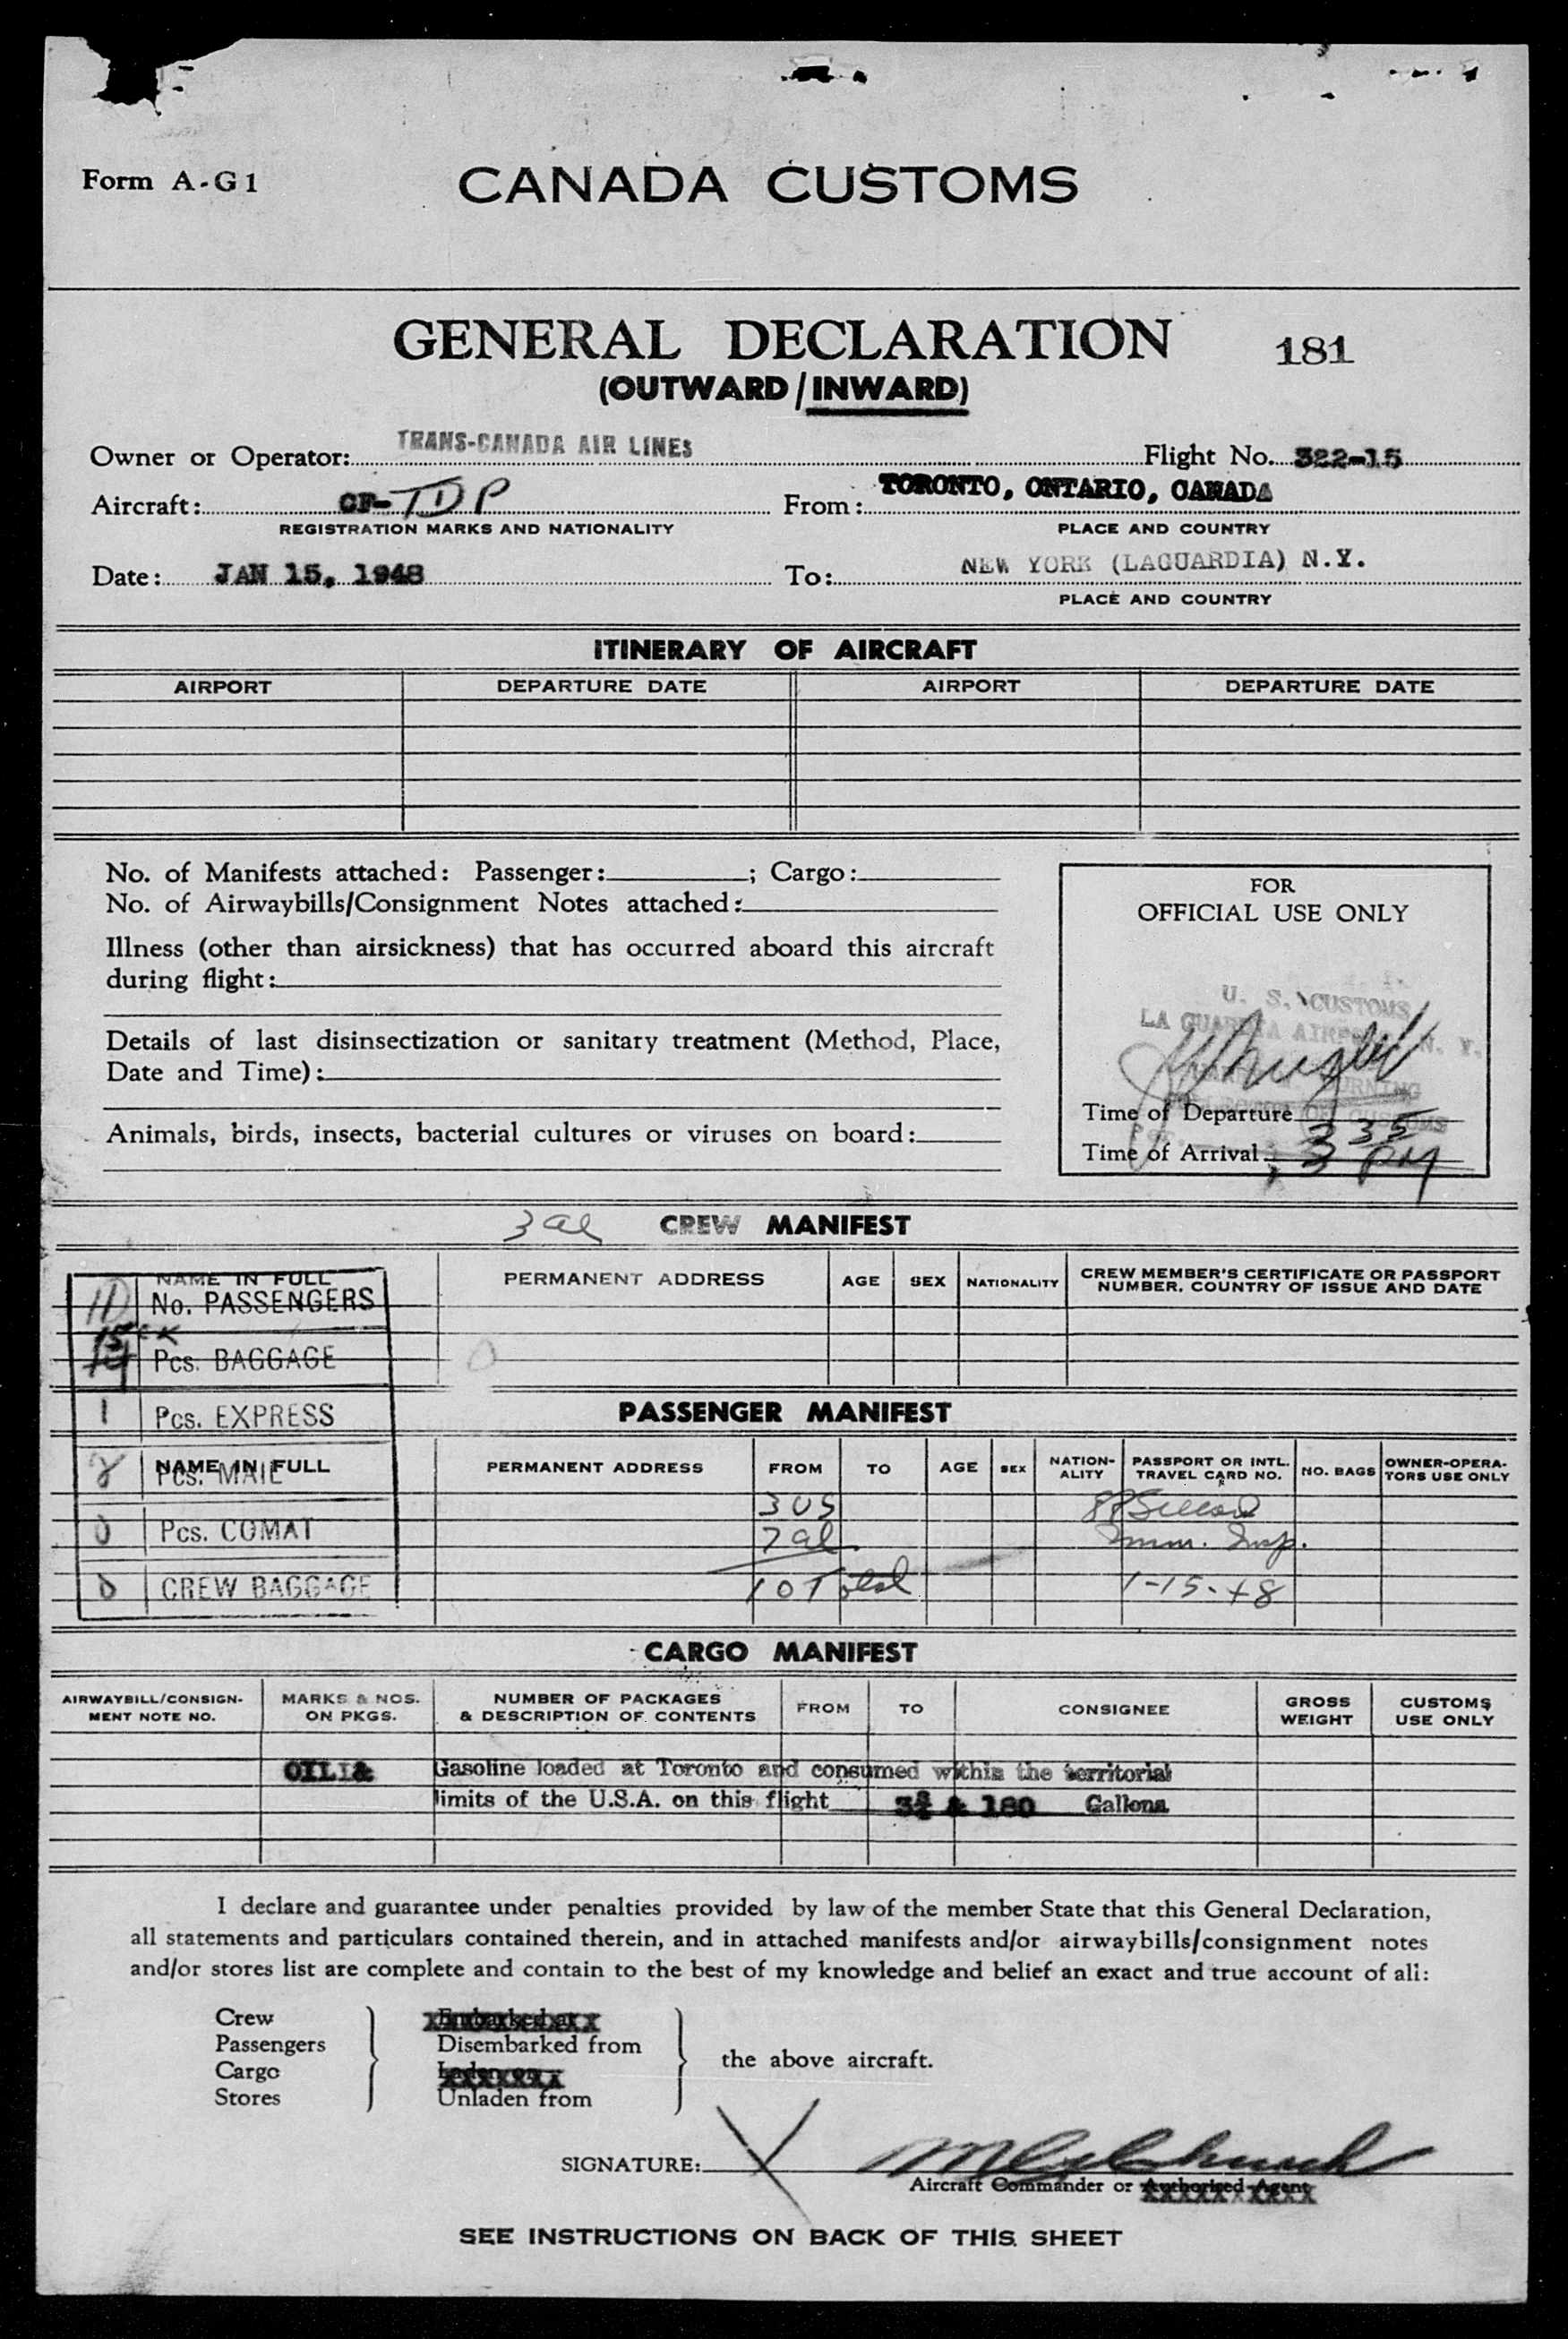 Form A-G1
CANADA CUSTOMS
GENERAL DECLARATION 181
(OUTWARD/INWARD)
Owner or Operator: TRANS-CANADA AIR LINES Flight No. 322-15
Aircraft: CF-TDP From: TORONTO, ONTARIO, CANADA
REGISTRATION MARKS AND NATIONALITY PLACE AND COUNTRY
Date: JAN 15, 1948 To: NEW YORK (LAGUARDIA) N.Y.
PLACE AND COUNTRY
ITINERARY OF AIRCRAFT
AIRPORT DEPARTURE DATE AIRPORT DEPARTURE DATE
No. of Manifests attached: Passenger: ; Cargo:
No. of Airwaybills/Consignment Notes attached:
Illness (other than airsickness) that has occurred aboard this aircraft
during flight:
Details of last disinsectization or sanitary treatment (Method, Place,
Date and Time):
Animals, birds, insects, bacterial cultures or viruses on board:
FOR
OFFICIAL USE ONLY
U. S. CUSTOMS
LA GUARDIA AIRPORT, N. Y.
Time of Departure
Time of Arrival 3 35 PM
3 al CREW MANIFEST
NAME IN FULL PERMANENT ADDRESS AGE SEX NATIONALITY CREW MEMBER'S CERTIFICATE OR PASSPORT
NUMBER, COUNTRY OF ISSUE AND DATE
No. PASSENGERS
Pcs. BAGGAGE
1 Pcs. EXPRESS
PASSENGER MANIFEST
NAME IN FULL PERMANENT ADDRESS FROM TO AGE SEX NATION-
ALITY PASSPORT OR INTL.
TRAVEL CARD NO. NO. BAGS OWNER-OPERA-
TORS USE ONLY
Pcs. MAIL
3 US
0 Pcs. COMAT 7 al Imm. Insp.
0 CREW BAGGAGE 10 Total 1-15-48
CARGO MANIFEST
AIRWAYBILL/CONSIGN-
MENT NOTE NO. MARKS & NOS.
ON PKGS. NUMBER OF PACKAGES
& DESCRIPTION OF CONTENTS FROM TO CONSIGNEE GROSS
WEIGHT CUSTOMS
USE ONLY
OIL & Gasoline loaded at Toronto and consumed within the territorial
limits of the U.S.A. on this flight 3¾ & 180 Gallons
I declare and guarantee under penalties provided by law of the member State that this General Declaration,
all statements and particulars contained therein, and in attached manifests and/or airwaybills/consignment notes
and/or stores list are complete and contain to the best of my knowledge and belief an exact and true account of all:
Crew Embarked at
Passengers Disembarked from
the above aircraft.
Cargo Laden on
Stores Unladen from
SIGNATURE: X
Aircraft Commander or Authorised Agent
SEE INSTRUCTIONS ON BACK OF THIS SHEET